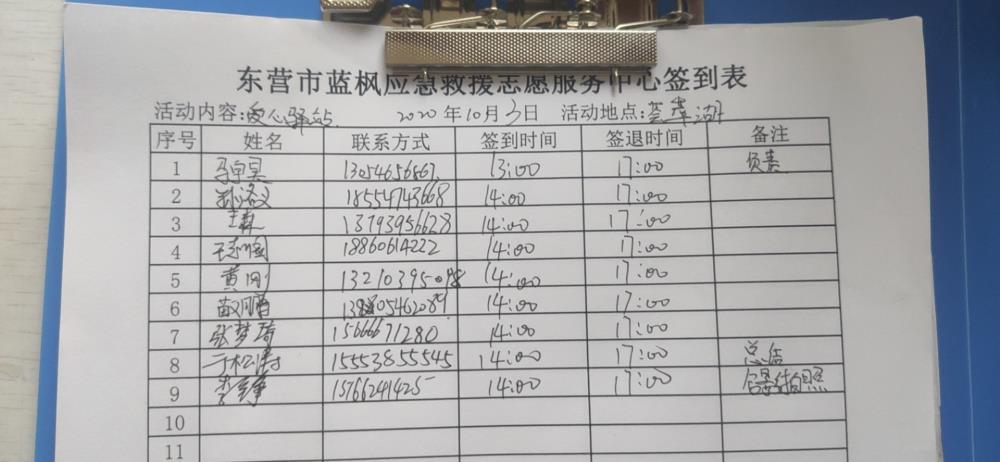 东营市蓝枫应急救援志愿服务中心签到表
活动内容:爱心驿站 2020年10月3日 活动地点:荟萃湖
序号 姓名 联系方式 签到时间 签退时间 备注
1 13054656867 13:00 17:00 负责
2 18554743668 14:00 17:00
3 王森 13793956628 14:00 17:00
4 18860614222 14:00 17:00
5 黄刚 13210395098 14:00 17:00
6 14:00 17:00
7 张梦琦 15666671280 14:00 17:00
8 于松涛 15553855545 14:00 17:00 总结
9 15766241425 14:00 17:00 拍照
10
11